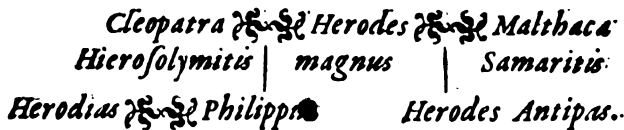 Cleopatra Herodes Malthaca
Hieroſolymitis magnus Samaritis.
Herodias Herodes Antipas.